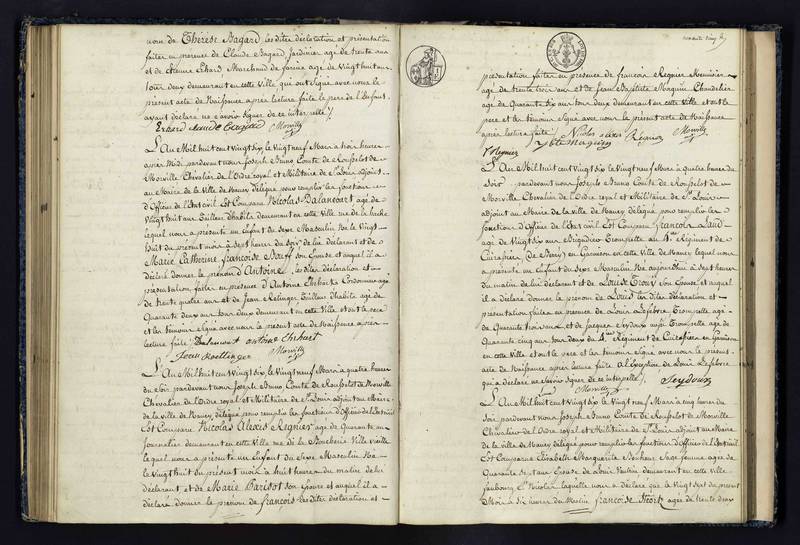 nom de Thérèse Bagard, lesdites déclaration et présentation
faites en présence de Claude Bagard Jardinier agé de trente ans
et de Etienne Erhard Marchand de farine agé de Vingt huit ans
tous deux demeurant en cette Ville qui ont signé avec nous le
présent acte de Naissance après lecture faite le père de l'Enfant
ayant déclaré ne savoir signer de ce interpellé /.
Erhard Claude Bagard Morville
L'An Mil huit cent Vingt six, le Vingt neuf Mars à trois heures
après midi pardevant nous Joseph Bruno Comte de Rousselot de
Morville Chevalier de l'Ordre royal et Militaire de St Louis adjoint
au Maire de la Ville de Nancy délégué pour remplir les fonctions
d'Officier de l'Etat civil Est Comparu Nicolas Balancourt agé de
Vingt huit ans Tailleur d'habits demeurant en cette Ville rue de la hache
lequel nous a présenté un Enfant du Sexe Masculin Né le Vingt
huit du présent mois à sept heures du Soir de lui déclarant et de
Marie Catherine françoise son Epouse et auquel il a
déclaré donner le prénom d'Antoine, lesdites déclaration et
présentation faites en présence d'Antoine Cordonnier agé
de trente quatre ans et de Jean Tailleur d'habits agé de
Quarante deux ans tous deux demeurant en cette Ville et ont le père
et les témoins signé avec nous le présent acte de Naissance après
lecture faite / Balancourt antoine
Morville
L'An Mil huit cent Vingt six, le Vingt neuf Mars à quatre heures
du Soir pardevant nous Joseph Bruno Comte de Rousselot de Morville
Chevalier de l'Ordre royal et Militaire de St Louis adjoint au Maire
de la ville de Nancy délégué pour remplir les fonctions d'Officier de l'Etat civil
Est Comparu Nicolas Alexis Regnier agé de Quarante ans
Journalier demeurant en cette Ville rue de la Boucherie Ville vieille
lequel nous a présenté un Enfant du Sexe Masculin Né
le Vingt huit du présent mois à huit heures du matin de lui
déclarant et de Marie Parisot son Epouse et auquel il a
déclaré donner le prénom de françois lesdites déclaration et
présentation faites en présence de francois Regnier Menuisier
agé de trente trois ans et de Jean Baptiste Magnien Chandelier
agé de Quarante six ans tous deux demeurant en cette ville et ont le
père et les témoins signé avec nous le présent acte de Naissance
après lecture faite / Nicolas alexis Regnier Morville
Jbte magnien
f Regnier
L'An Mil huit cent Vingt six le Vingt neuf Mars à quatre heures du
Soir pardevant nous Joseph Bruno Comte de Rousselot de
Morville Chevalier de l'Ordre royal et Militaire de St Louis
adjoint au Maire de la ville de Nancy délégué pour remplir les
fonctions d'Officier de l'Etat civil Est Comparu francois
agé de Vingt six ans Brigadier Trompette au 4me Régiment de
Cuirassiers (de Berry) en Garnison en cette Ville de Nancy lequel nous
a présenté un Enfant du Sexe Masculin Né aujourd'hui à sept heures
du matin de lui déclarant et de Louise son Epouse et auquel
il a déclaré donner le prénom de Louis les dites déclaration et
présentation faites en présence de Louis Lefebvre Trompette agé
de Quarante trois ans et de Jacques Seydoux aussi Trompette agé de
Quarante cinq ans tous deux du 4me Régiment de Cuirassiers en Garnison
en cette Ville et ont le père et les témoins signé avec nous le présent
acte de Naissance après lecture faite à l'exception de Louis Lefebvre
qui a déclaré ne savoir signer de ce interpellé / Seydoux
Morville
L'An Mil huit cent Vingt six le Vingt neuf Mars à cinq heures du
soir pardevant nous Joseph Bruno Comte de Rousselot de Morville
Chevalier de l'Ordre royal et Militaire de St Louis adjoint au Maire
de la ville de Nancy délégué pour remplir les fonctions d'Officier de l'Etat civil
Est Comparue Elisabeth Marguerite Sage femme agée de
Quarante sept ans Epouse de Louis Vautrin demeurant en cette Ville
faubourg St Nicolas laquelle nous a déclaré que le Vingt sept du présent
Mois à dix heures du Matin, françoise agée de trente deux